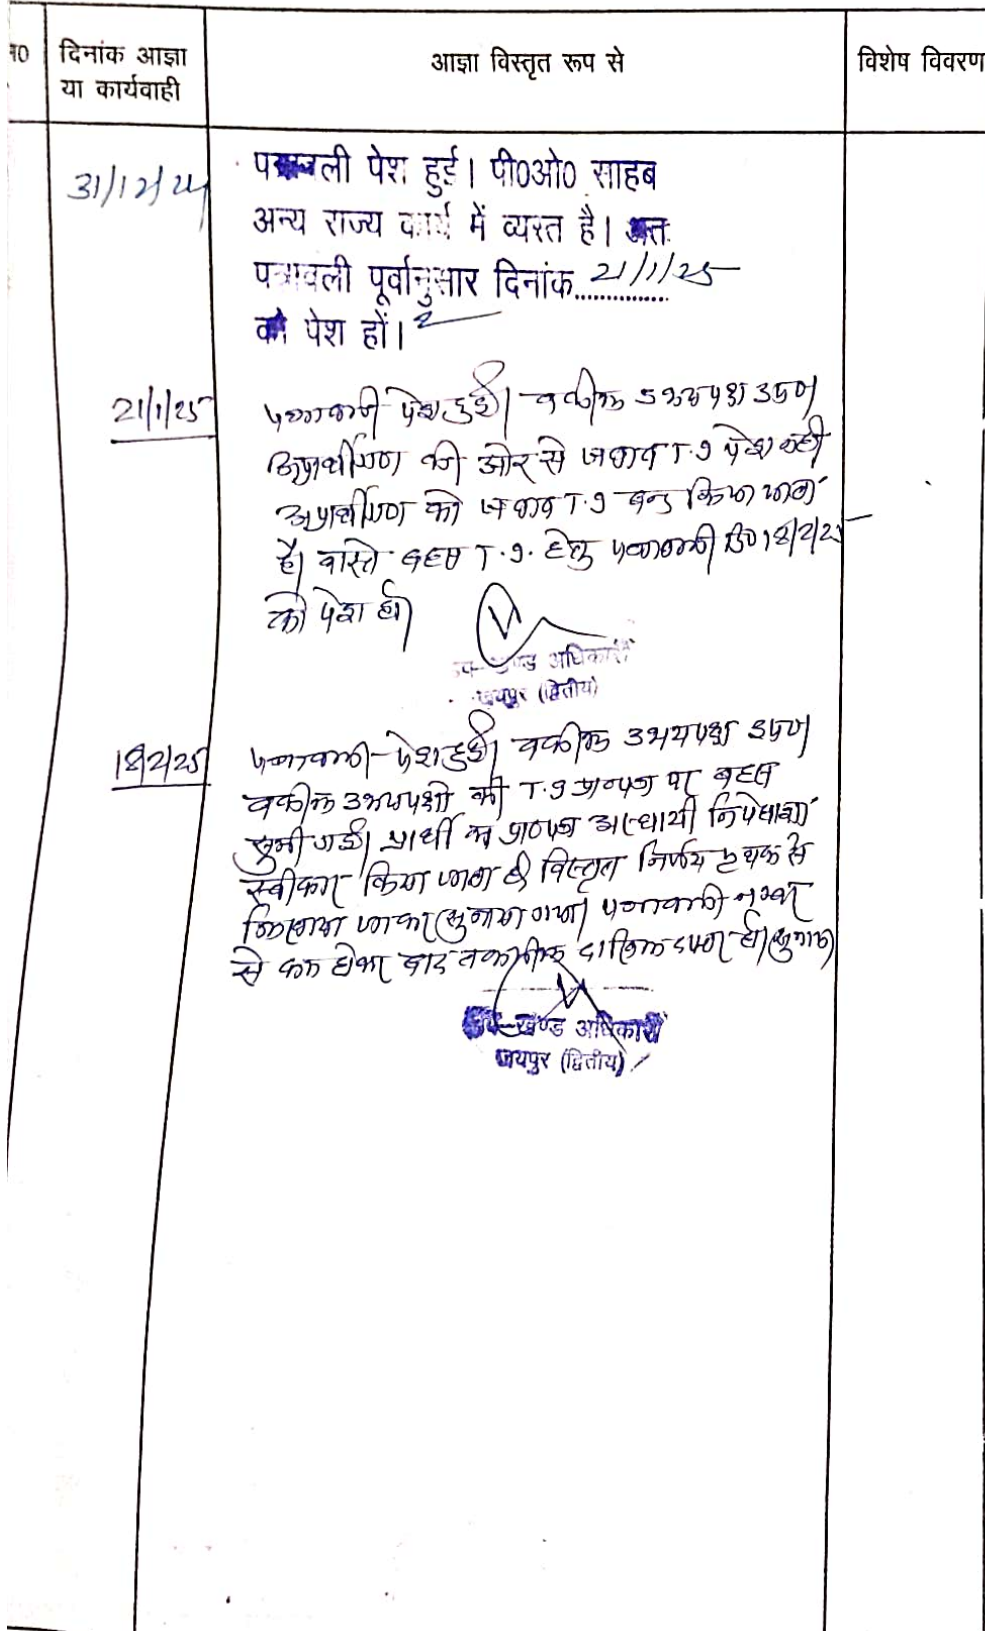 न0
दिनांक आज्ञा
या कार्यवाही
आज्ञा विस्तृत रूप से
विशेष विवरण
31/12/24
पत्रावली पेश हुई। पी0ओ0 साहब
अन्य राज्य कार्य में व्यस्त है। अतः
पत्रावली पूर्वानुसार दिनांक 21/1/25
को पेश हों।
21/1/25
पत्रावली पेश हुई। वकील उभयपक्ष उप0।
अप्रार्थीगण की ओर से जवाब T.I पेश नहीं
अप्रार्थीगण को जवाब T.I बन्द किया जाता
है। वास्ते बहस T.I. हेतु पत्रावली दि0 18/2/25
को पेश हो।
उप-खण्ड अधिकारी
जयपुर (द्वितीय)
18/2/25
पत्रावली पेश हुई। वकील उभयपक्ष उप0।
वकील उभयपक्षो की T.I प्रा०पत्र पर बहस
सुनी गई। प्रार्थी का प्रा०पत्र अस्थायी निषेधाज्ञा
स्वीकार किया जाता है। विस्तृत निर्णय पृथक से
लिखाया जाकर सुनाया गया। पत्रावली नम्बर
से कम होकर बाद तकमील दाखिल दफ्तर हो।
उप-खण्ड अधिकारी
जयपुर (द्वितीय)